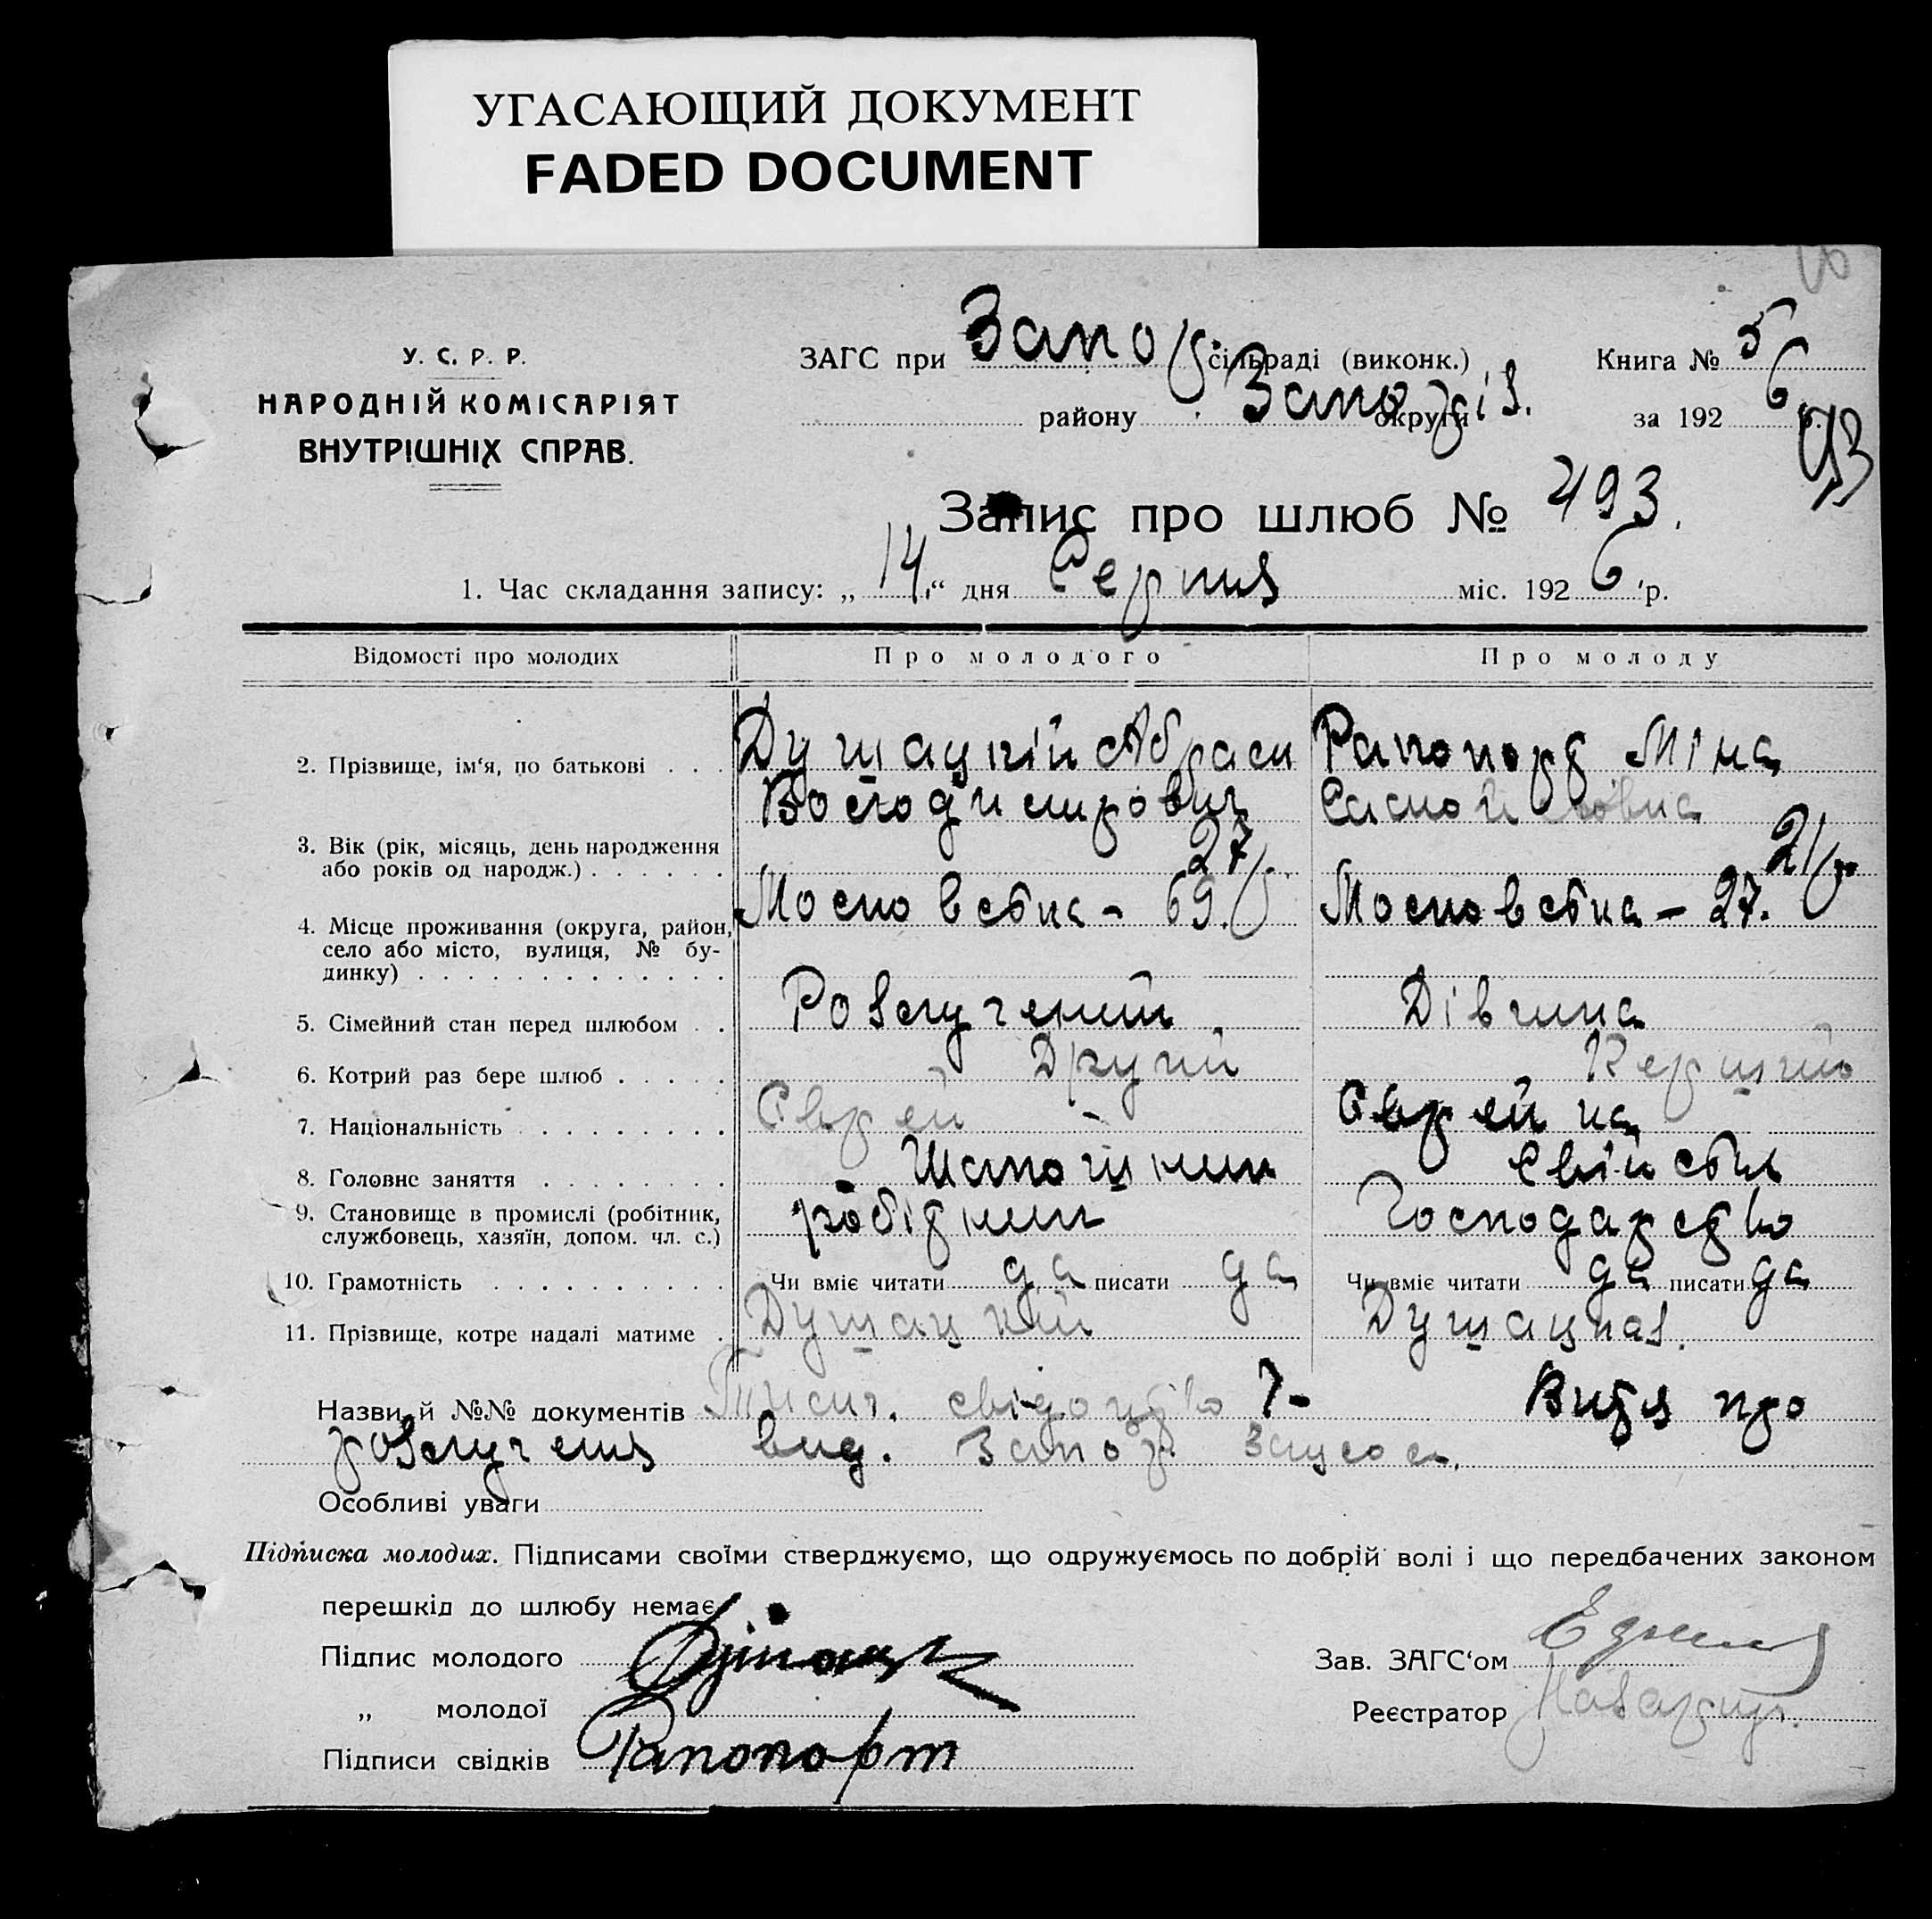 УГАСАЮЩИЙ ДОКУМЕНТ
FADED DOCUMENT
У. С. Р. Р.
НАРОДНІЙ КОМІСАРІЯТ
ВНУТРІШНІХ СПРАВ.
ЗАГС при Запор. сільраді (виконк.) Книга № 5
району Запоріз. округи за 1926 р.
493
Запис про шлюб № 493.
1. Час складання запису: „ 14 “ дня Серпня міс. 1926 р.
Відомості про молодих Про молодого Про молоду
2. Прізвище, ім‘я, по батькові . . . Душацкій Абрам Рапопорт Міна
Володимирович Самойловна
3. Вік (рік, місяць, день народження
або років од народж.) . . . . . . 27 р. 21 р.
4. Місце проживання (округа, район, Московська – 69. Московська – 27.
село або місто, вулиця, № бу-
динку) . . . . . . . . . . . . .
5. Сімейний стан перед шлюбом . . Розлучений. Дівчина
6. Котрий раз бере шлюб . . . . . Другий Перший
7. Національність . . . . . . . . . Єврей Єврейка
8. Головне заняття . . . . . . . . Шапошник Свійське
9. Становище в промислі (робітник, робітник Господарство
службовець, хазяїн, допом. чл. с.)
10. Грамотність . . . . . . . . . . Чи вміє читати да писати да Чи вміє читати да писати да
11. Прізвище, котре надалі матиме . Душацкий Душацкая.
Назви й №№ документів свідоцтво Витя про
розлучення вид. Запор. Загсом.
Особливі уваги
Підписка молодих. Підписами своїми стверджуємо, що одружуємось по добрій волі і що передбачених законом
перешкід до шлюбу немає.
Підпис молодого
Зав. ЗАГС‘ом
„ молодої
Реєстратор
Підписи свідків Рапопорт